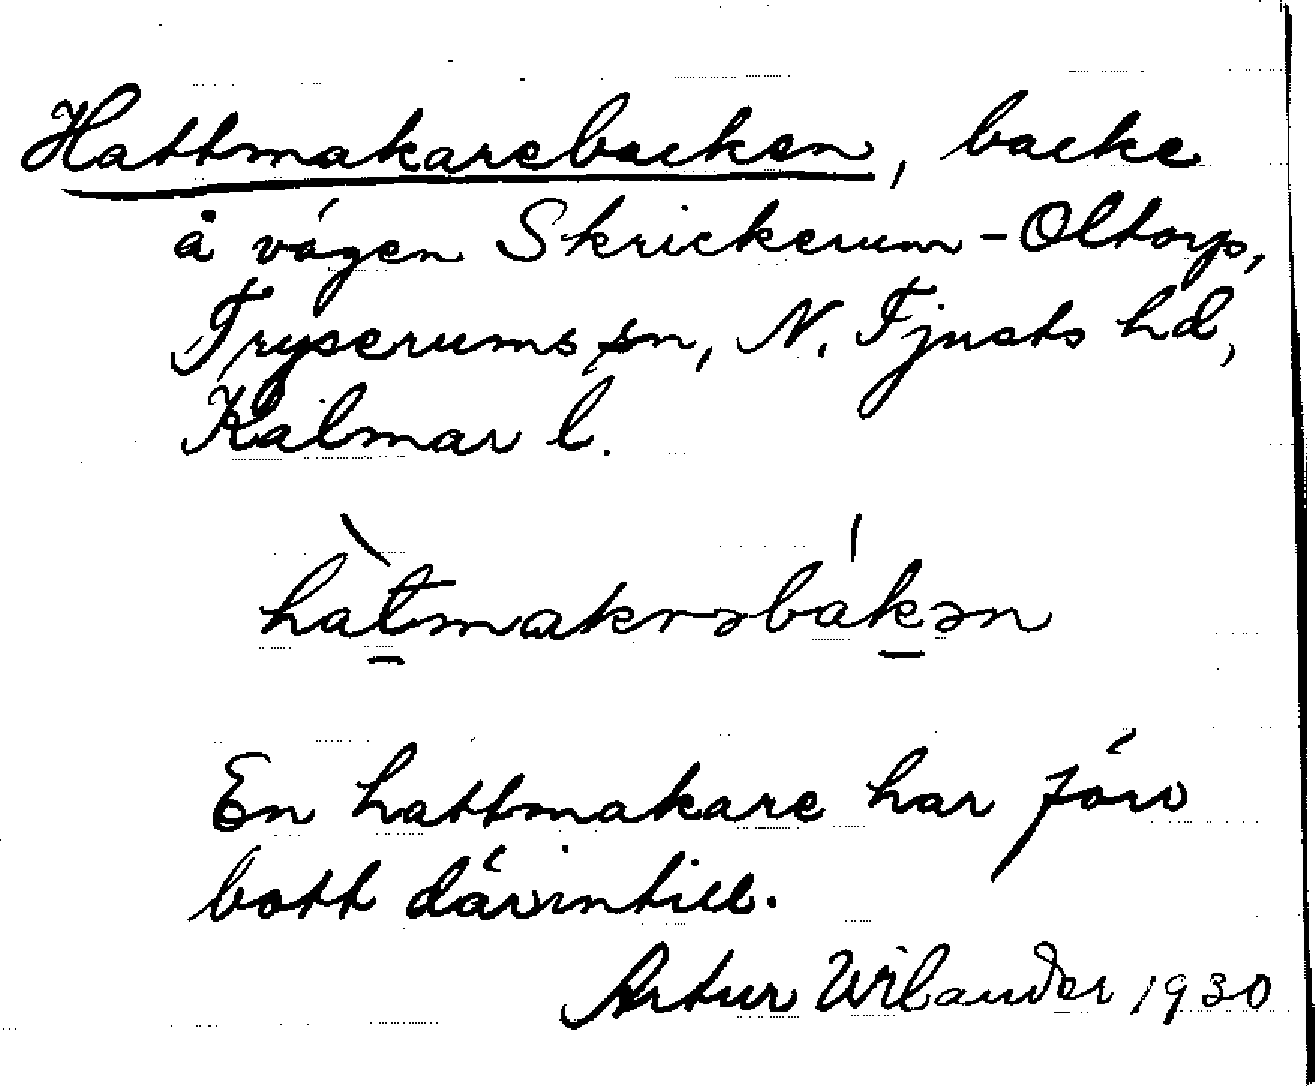 Hattmakarebacken, backe
å vägen Skrickerum - Oltorp,
Tryserums sn, N. Tjusts hd,
Kalmar l.
hàt̠makrəbák̠ən
En hattmakare har förr
bott därintill.
Artur Wilander 1930